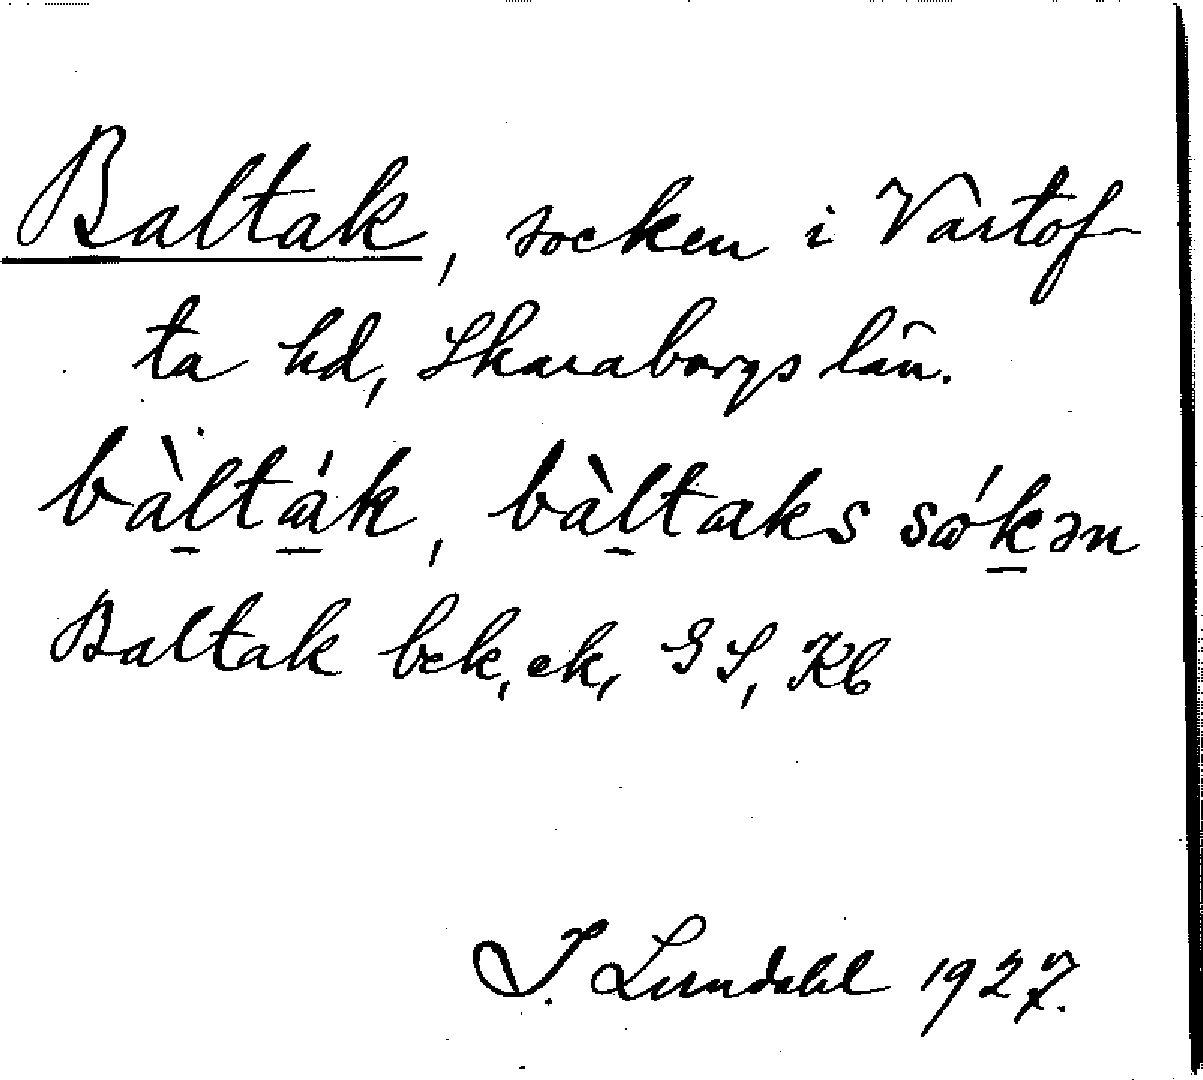 Baltak, socken i Vartof-
ta hd, Skaraborgs län.
bàlták, bàltaks sókən
Baltak bek, ek, GS, Kb
I. Lundahl 1927.